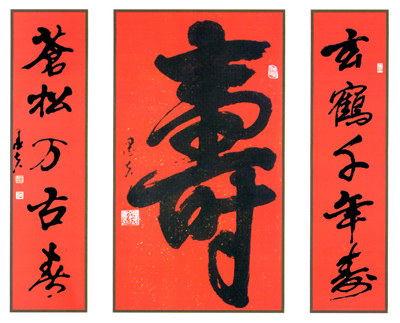 玄鶴千年壽
壽
蒼松万古春